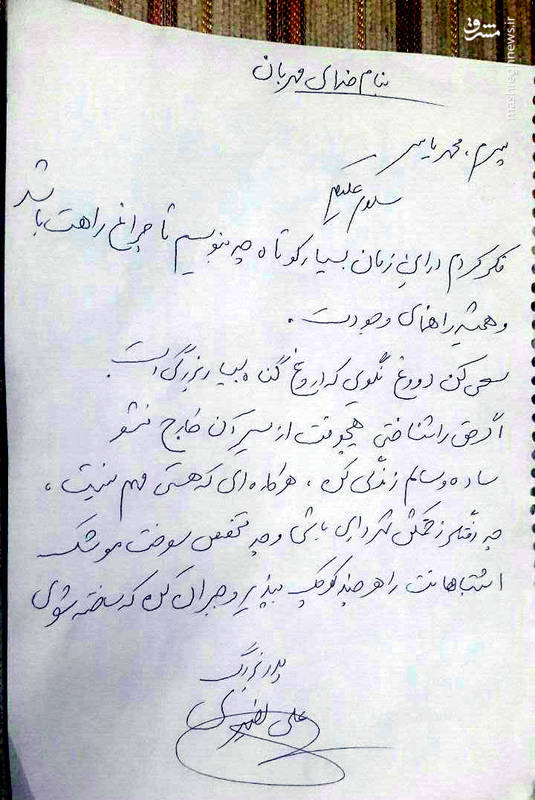 مشرق
mashreghnews.ir
بنام خدای مهربان
پسرم، محمد یاسر
سلام علیکم
فکر کردم در این زمان بسیار کوتاه چه بنویسم تا چراغ راهت باشد
و همیشه راهنمای وجودت.
سعی کن دروغ نگویی که دروغ گناه بسیار بزرگی است
اگر حق را شناختی هیچوقت از مسیر آن خارج نشو
ساده و سالم زندگی کن، هر کاره ای که هستی مهم نیست،
چه رفتگر زحمتکش شهرداری باشی و چه متخصص سوخت موشک
اشتباهاتت را هر چند کوچک بپذیر و جبران کن که سخته شوی
پدر بزرگ
علی